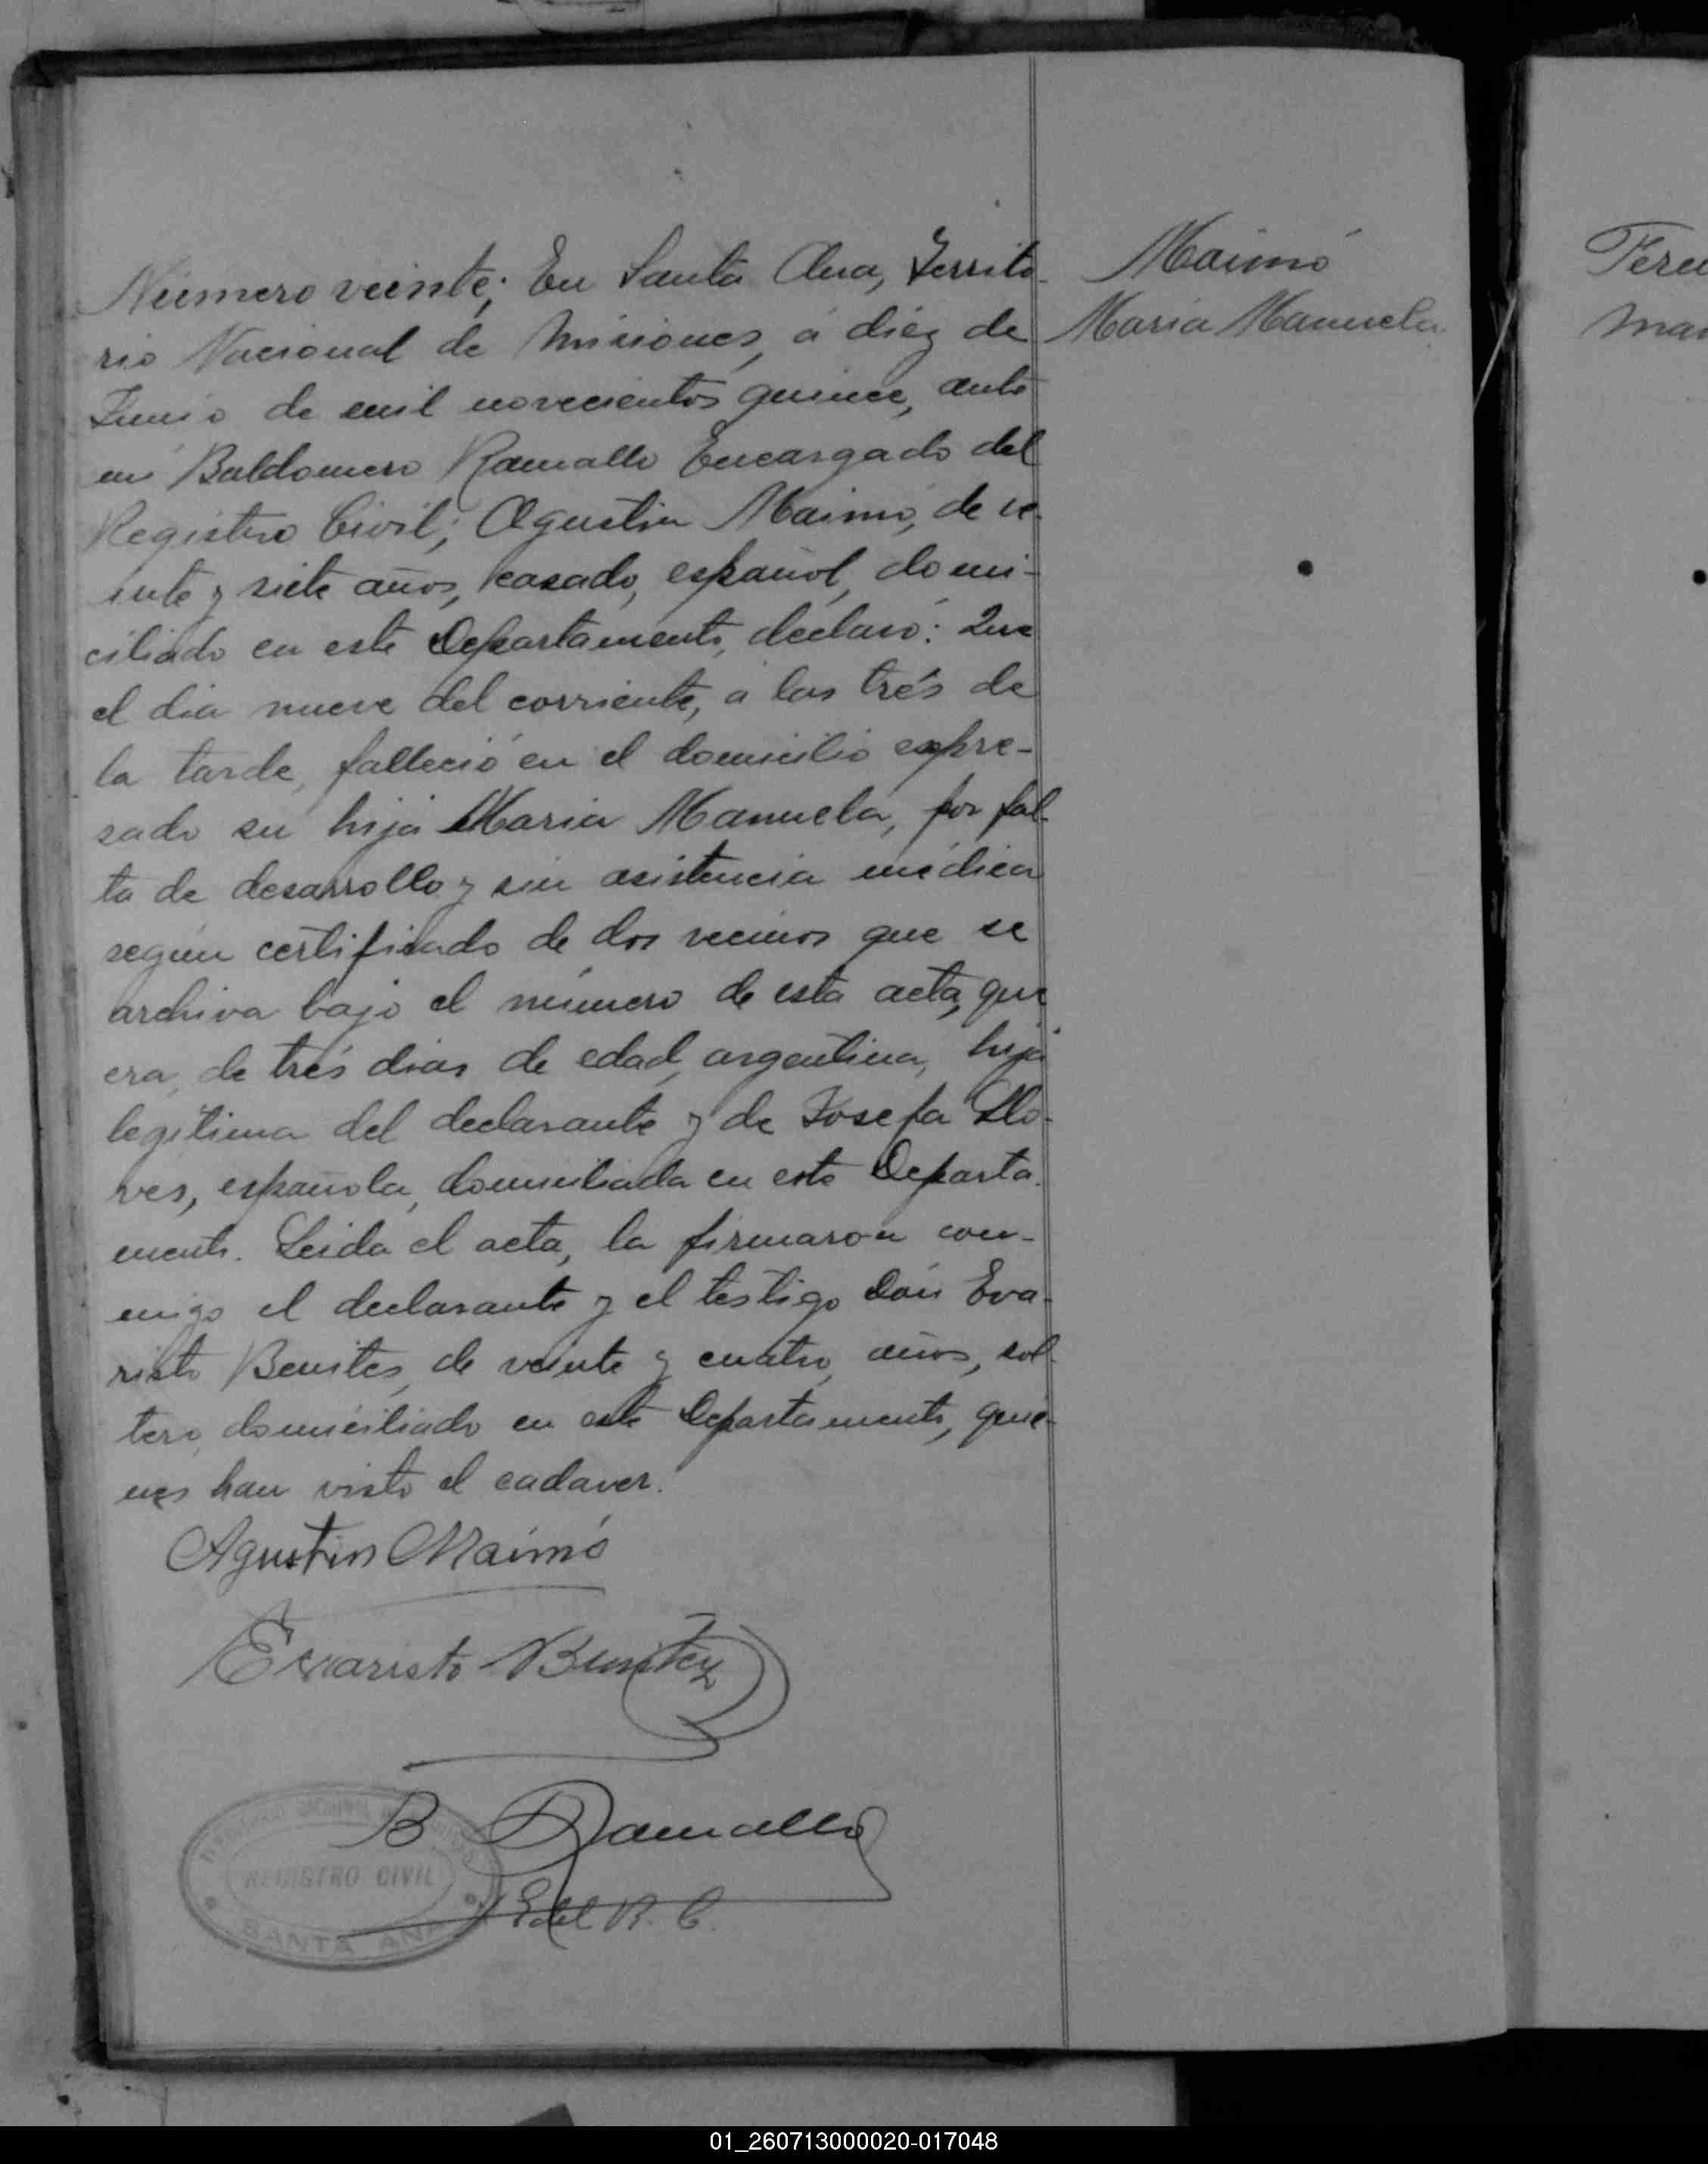 Número veinte; En Santa Ana, Territo-
rio Nacional de Misiones, á diez de
Junio de mil novecientos quince, ante
mi Baldomero Ramallo Encargado del
Registro Civil; Agustin Maimó, de ve-
inte y siete años, casado, español, domi-
ciliado en este Departamento, declaró: Que
el dia nueve del corriente, á las trés de
la tarde, falleció en el domicilio expre-
sado su hija Maria Manuela, por fal-
ta de desarrollo y sin asistencia médica
según certificado de dos vecinos que se
archiva bajo el número de esta acta, que
era, de trés dias de edad, argentina, hija
legítima del declarante y de Josefa Llo-
ves, española, domiciliada en este Departa-
mento. Leida el acta, la firmaron con-
migo el declarante y el testigo Don Eva-
risto Benites, de veinte y cuatro, años, sol-
tero, domiciliado en este Departamento, quie-
nes han visto el cadaver.
Agustin Maimó
Evaristo Benitez
B Ramallo
E del R. C.
REGISTRO CIVIL
SANTA ANA
Maimó
Maria Manuela
01_260713000020-017048